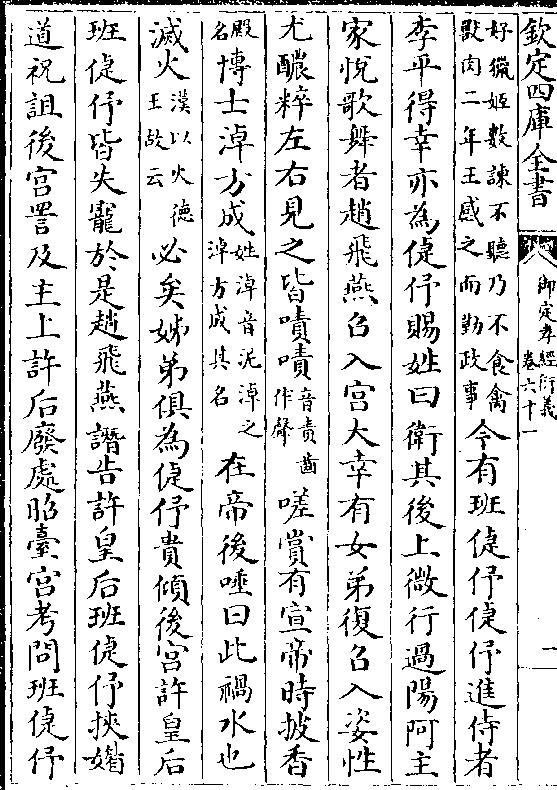 欽定四庫全書
御定孝經衍義
卷六十一
一
好獵姬數諫不聽乃不食禽
獸肉二年王感之而勤政事
今有班倢伃倢伃進侍者
李平得幸亦為倢伃賜姓曰衛其後上微行過陽阿主
家悅歌舞者趙飛燕召入宮大幸有女弟復召入姿性
尤醲粹左右見之皆嘖嘖
音責齒
作聲
嗟賞有宣帝時披香
殿
名
博士淖方成
姓淖音泥淖之
淖方成其名
在帝後唾曰此禍水也
滅火
漢以火德
王故云
必矣姊弟俱為倢伃貴傾後宮許皇后
班倢伃皆失寵於是趙飛燕譖告許皇后班倢伃挾媚
道祝詛後宮詈及主上許后廢處昭臺宮考問班倢伃